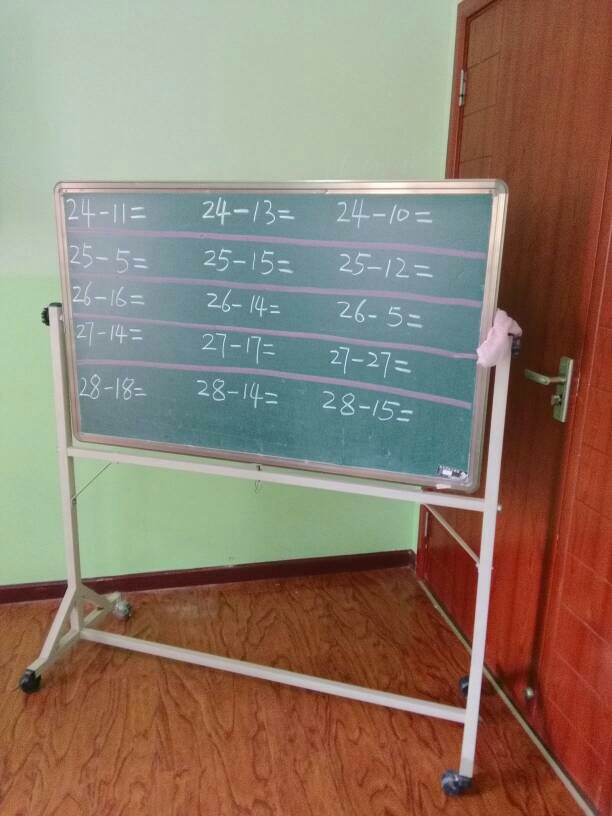 24-11= 24-13= 24-10=
25-5= 25-15= 25-12=
26-16= 26-14= 26-5=
27-14= 27-17= 27-27=
28-18= 28-14= 28-15=